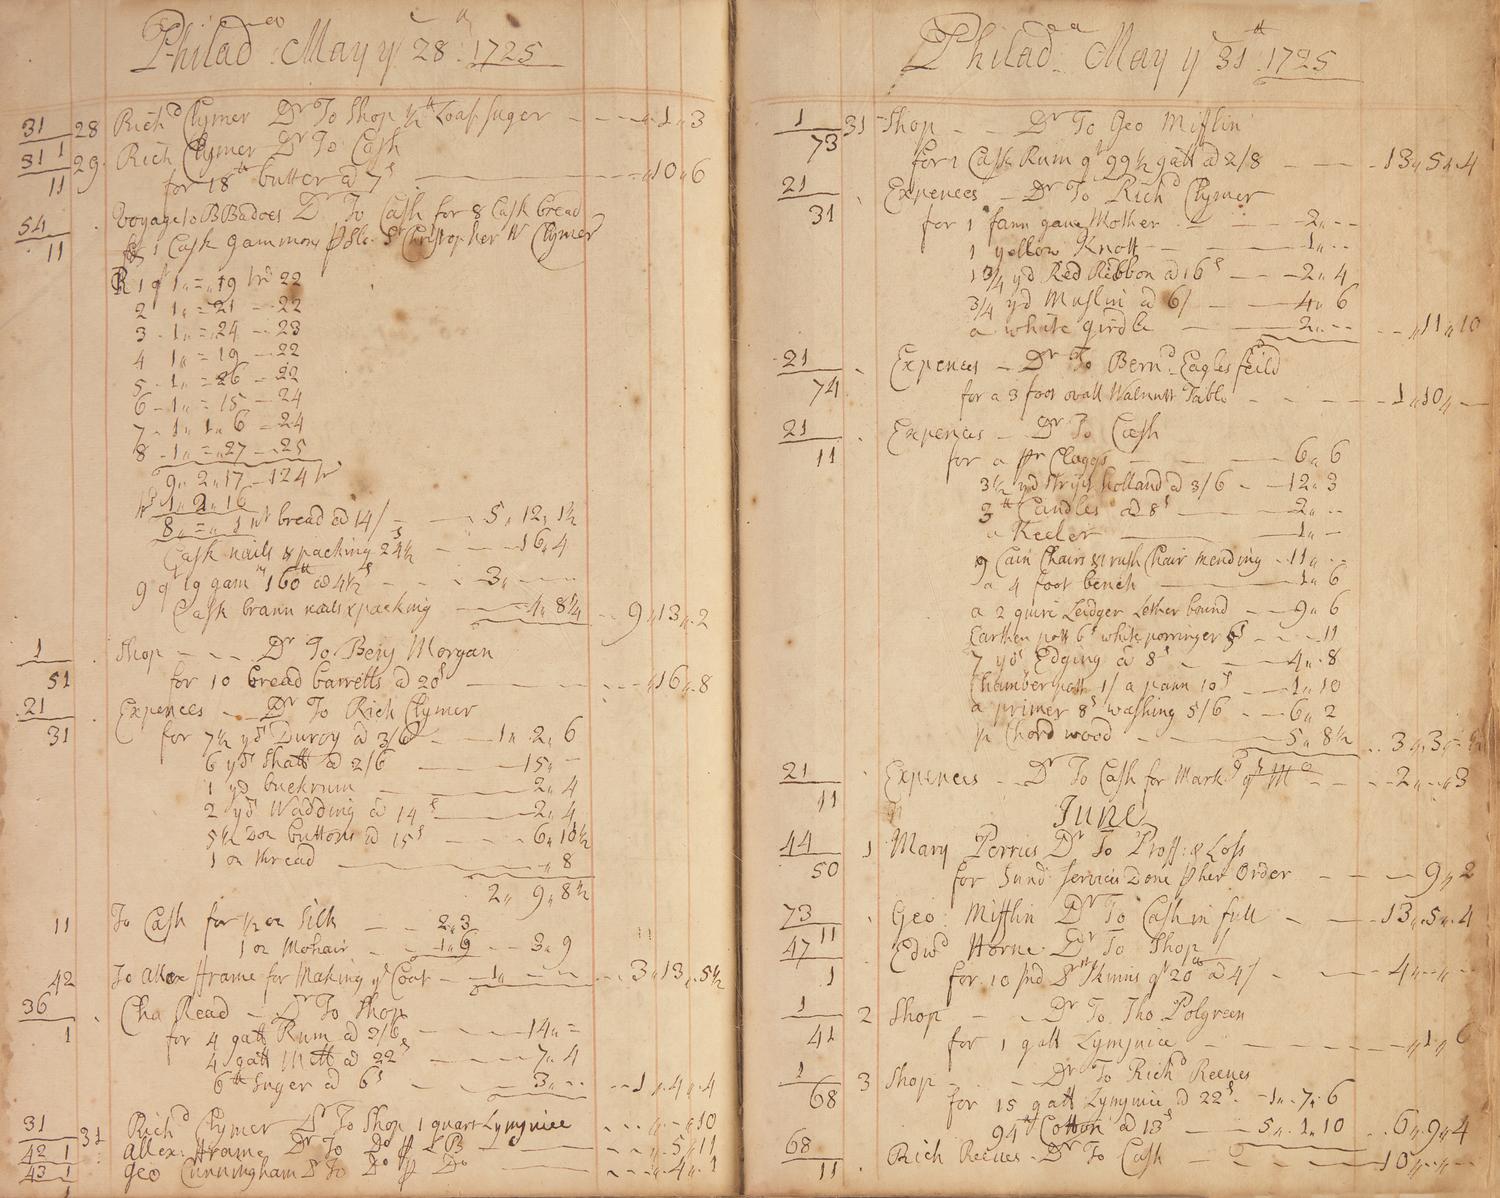 Philad May ye 28th 1725
31 28 Richd Clymer Dr To Shop ½ lb Loaf Suger 1 3
31 1 29 Rich Clymer Dr To Cash
11 for 18 lb butter @ 7d 10 6
54 Voyage to BBadoes Dr To Cash for 8 Cask bread
11 & 1 Cask Gammons Slo. St Christopher W Clymer
1 qt 1 = 19 tr 22
2 1 = 21 22
3 1 = 24 23
4 1 = 19 22
5 1 = 26 22
6 1 = 15 24
7 1 1 6 24
8 1 = 27 25
9 2 17 124 tr
1 2 16
8 = 1 Nt bread @ 14/ 5 12 1½
Cask nails & packing 24½ 16 4
9 qt 19 gam 160 lb @ 4½d 3
Cask brann nails & packing 4 8¼ 9 13 2
1 Shop Dr To Benj Morgan
51 for 10 bread barrells @ 20d 16 8
21 Expences Dr To Rich Clymer
31 for 7½ yds Duroy @ 3/ 1 2 6
6 yds Shall @ 2/6 15
1 yd buckrum 2 4
2 yds Wadding @ 14d 2 4
5½ doz buttons @ 15d 6 10½
1 oz thread 8
2 9 8½
11 To Cash for ½ oz Silk 2 3
1 oz Mohair 1 6 3 9
42 To Allex Frame for Making ye Coat 1 3 13 5½
36 Cha Read Dr To Shop
1 for 4 gall Rum @ 3/6 14 =
4 gall Mell @ 22d 7 4
6 lb Suger @ 6d 3 1 4 4
31 31 Richd Clymer Dr To Shop 1 quart Lymjuice 10
42 1 Allex: Frame Dr To Do 5 11
43 1 Geo Cunningham Dr To Do Do 4 1
Philada May ye 31th 1725
1 31 Shop Dr To Geo Mifflin
73 for 1 Cask Rum qt 99½ gall @ 2/8 13 5 4
21 Expences Dr To Richd Clymer
31 for 1 fann gave Mother 2
1 yellow Knott 1
1¾ yd Red Ribbon @ 16d 2 4
¾ yd Muslin @ 6/ 4 6
a white girdle 2 11 10
21 Expences Dr To Bernd Eaglesfeild
74 for a 3 foot ovall Walnutt Table 1 10
21 Expences Dr To Cash
11 for a pr Cloggs 6 6
3½ yd Strip Holland @ 3/6 12 3
3 lb Candles @ 8d 2
a Keeler 1
9 Cain Chairs & 1 rush Chair mending 11
a 4 foot bench 1 6
a 2 quire Leidger Lether bound 9 6
Earthen pott 6d white porringer 5d 11
7 yds Edging @ 8d 4 8
Chamber pott 1/ a pann 10d 1 10
a primer 8d washing 5/6 6 2
½ Chord wood 5 8½ 3 3
21 Expences Dr To Cash for Markt 2 3
11
June
44 1 Mary Perries Dr To Proff: & Loss
50 for Sundr Servicis Done her Order 9 2
73 Geo: Mifflin Dr To Cash in full 13 5 4
47 11 Edwd Horne Dr To Shop
1 for 10 Ind Drt Skinns qt 20 lb @ 4/ 4
1 2 Shop Dr To Tho Polgreen
41 for 1 gall Lymjuice 1 6
1 3 Shop Dr To Richd Reeves
68 for 15 gall Lymjuice @ 22d 1 7 6
94 lb Cotton @ 13d 5 1 10 6 9 4
68 Rich Reeves Dr To Cash 10
11